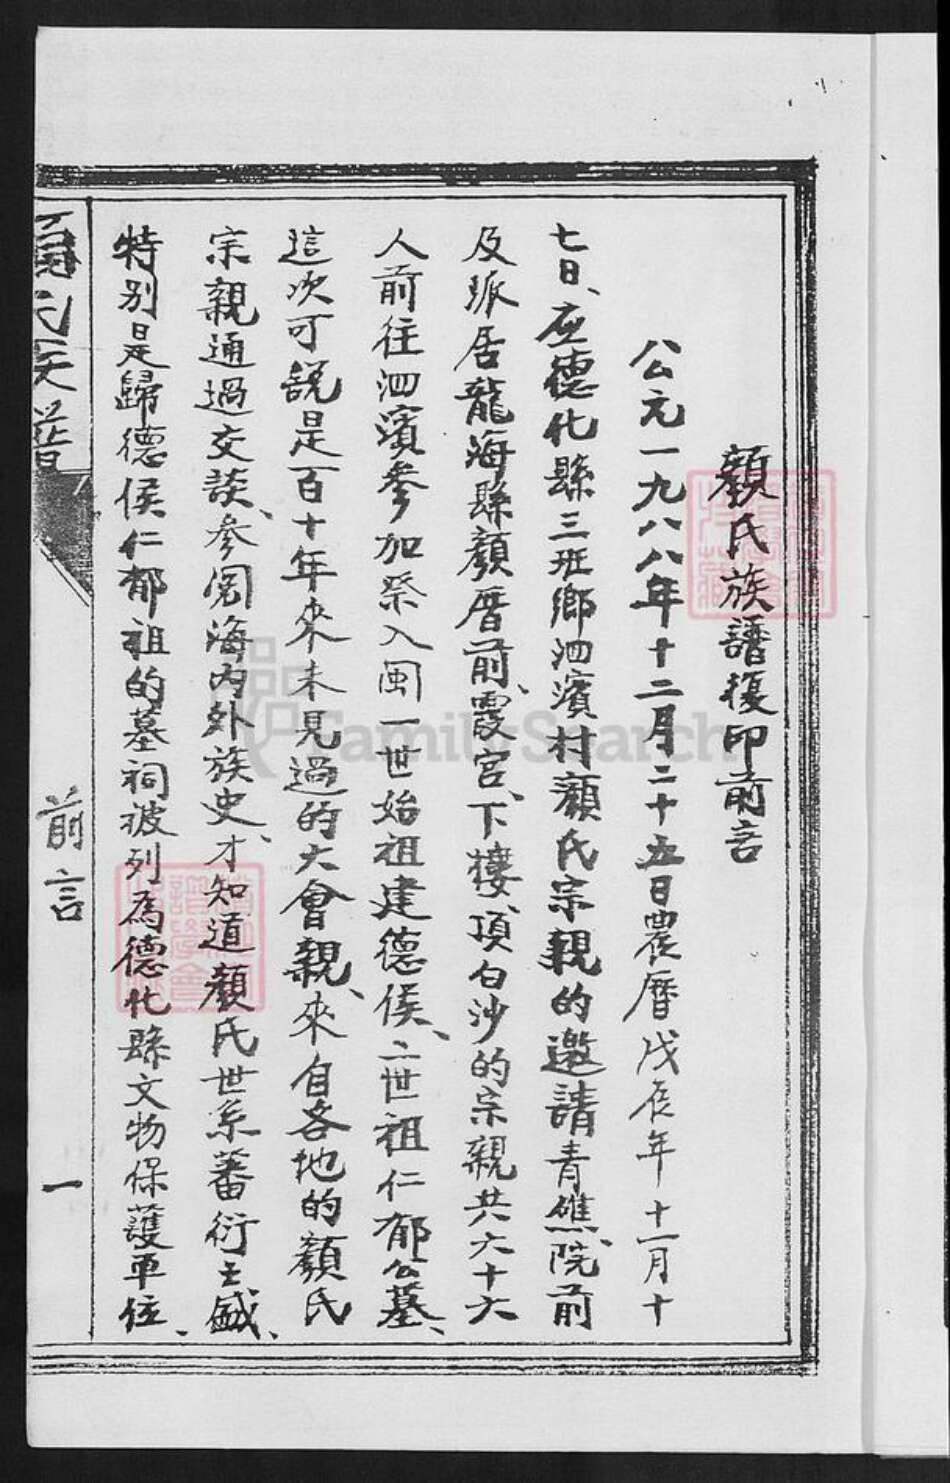 顏氏族譜復印前言
公元一九八八年十二月二十五日農曆戊辰年十一月十
七日、应德化縣三班鄉泗濱村顏氏宗親的邀請青礁、院前
及派居龍海縣顏厝前、霞宮、下樓、頂白沙的宗親共六十六
人前往泗濱參加祭入閩一世始祖建德侯、二世祖仁郁公墓、
這次可説是百十年來未見過的大會親、來自各地的顏氏
宗親通過交談、參阅海内外族史、才知道顏氏世系蕃衍之盛、
特别是歸德侯仁郁祖的墓祠被列為德化縣文物保護单位、
前言
一
FamilySearch